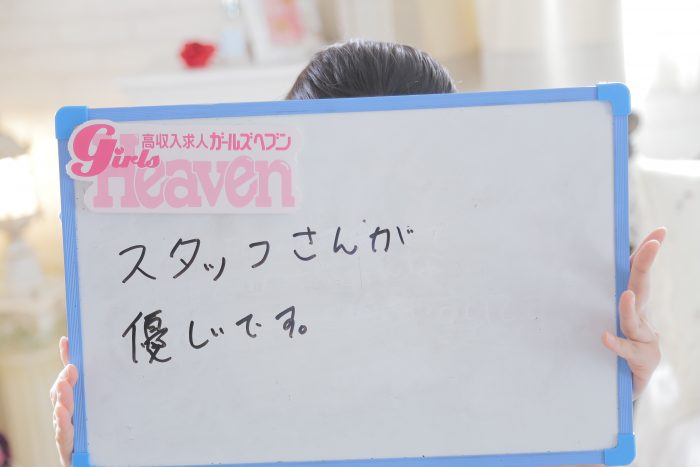 高収入求人ガールズヘブン
Girls
Heaven
スタッフさんが
優じです。